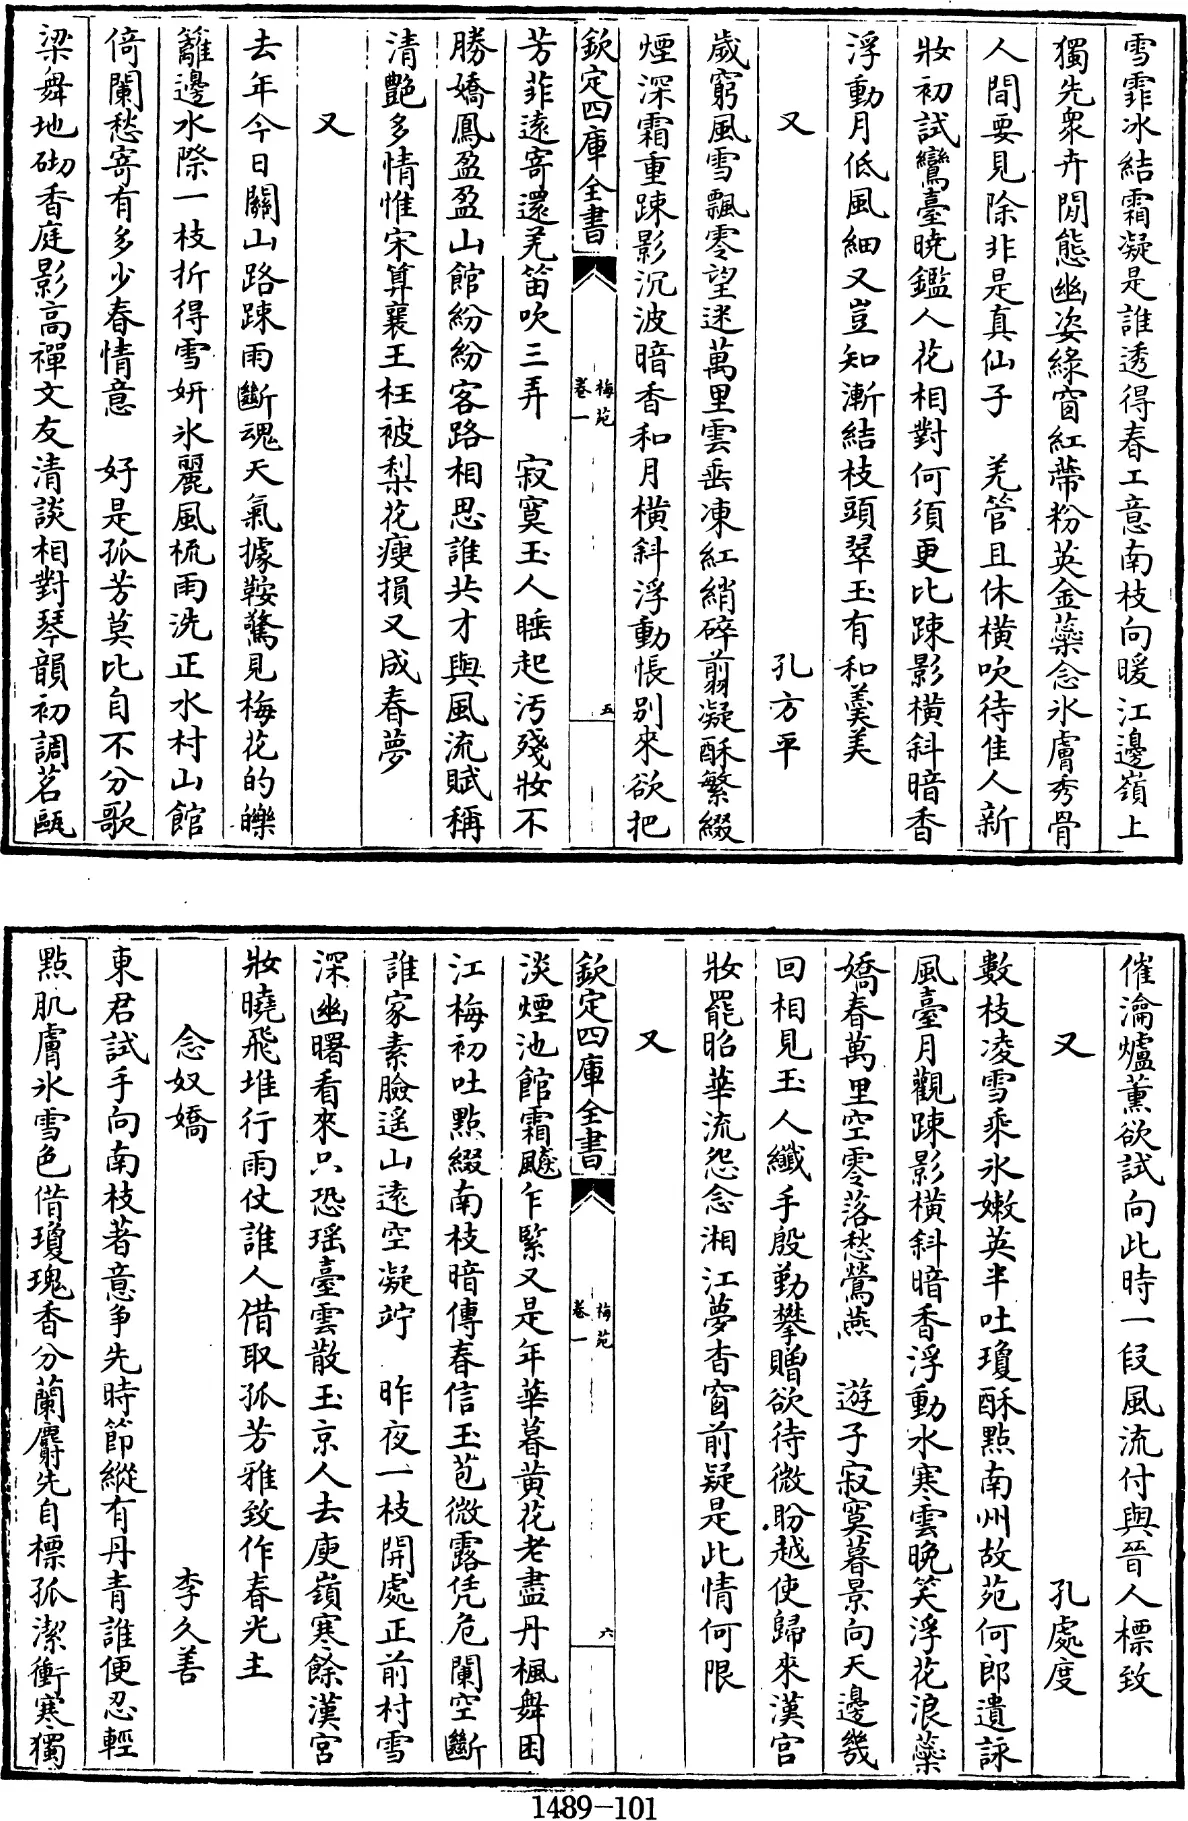 雪霏冰結霜凝是誰透得春工意南枝向暖江邊嶺上
獨先衆卉閒態幽姿綠窗紅蔕粉英金蘂念氷膚秀骨
人間要見除非是真仙子　羌管且休橫吹待佳人新
妝初試鸞臺曉鑑人花相對何須更比踈影橫斜暗香
浮動月低風細又豈知漸結枝頭翠玉有和羹美
又　孔方平
歲窮風雪飄零望迷萬里雲垂凍紅綃碎翦凝酥繁綴
煙深霜重踈影沉波暗香和月橫斜浮動悵别來欲把
欽定四庫全書　梅苑卷一　五
芳菲遠寄還羌笛吹三弄　寂寞玉人睡起汚殘妝不
勝嬌鳳盈盈山館紛紛客路相思誰共才與風流賦稱
清艷多情惟宋算襄王枉被梨花瘦損又成春夢
又
去年今日關山路踈雨斷魂天氣據鞍驚見梅花的皪
籬邊水際一枝折得雪妍氷麗風梳雨洗正水村山館
倚闌愁寄有多少春情意　好是孤芳莫比自不分歌
梁舞地砌香庭影高禪文友清談相對琴韻初調茗甌
催瀹爐薰欲試向此時一段風流付與晉人標致
又　孔處度
數枝凌雪乘氷嫩英半吐瓊酥點南州故苑何郎遺詠
風臺月觀踈影橫斜暗香浮動水寒雲晚笑浮花浪蘂
嬌春萬里空零落愁鶯燕　遊子寂寞暮景向天邊幾
回相見玉人纖手殷勤攀贈欲待微盼越使歸來漢宮
妝罷昭華流怨念湘江夢杳窗前疑是此情何限
又
欽定四庫全書　梅苑卷一　六
淡煙池館霜飈乍緊又是年華暮黄花老盡丹楓舞困
江梅初吐點綴南枝暗傳春信玉苞微露凭危闌空斷
誰家素臉遥山遠空凝竚　昨夜一枝開處正前村雪
深幽曙看來只恐瑶臺雲散玉京人去庾嶺寒餘漢宮
妝曉飛堆行雨仗誰人借取孤芳雅致作春光主
念奴嬌　李久善
東君試手向南枝著意争先時節縱有丹青誰便忍輕
點肌膚氷雪色借瓊瑰香分蘭麝先自標孤潔衝寒獨
1489-101